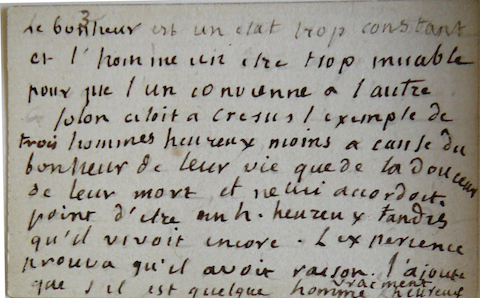 3
le bonheur est un etat trop constant
et l'homme un etre trop muable
pour que l'un convienne a l'autre
solon citoit a Cresus l'exemple de
trois hommes heureux moins a cause du
bonheur de leur vie que de la douceur
de leur mort, et ne lui accordoit
point d'etre un h. heureux tandis
qu'il vivoit encore. L'experience
prouva qu'il avoit raison. J'ajoute
vraiment
que s'il est quelque homme heureux